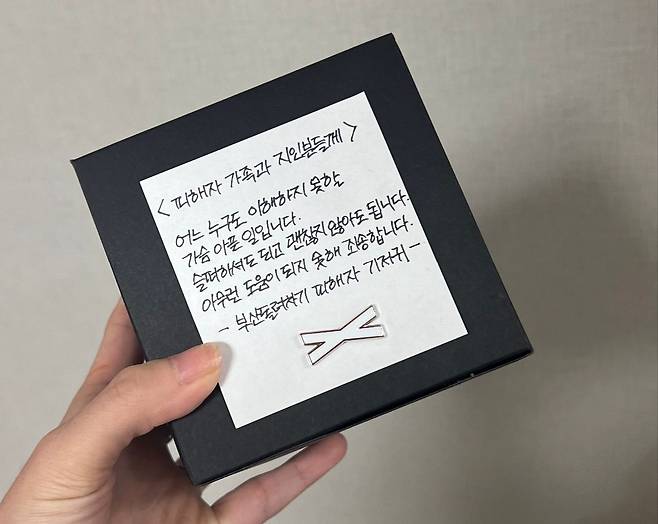 <피해자 가족과 지인분들께>
어느 누구도 이해하지 못할
가슴 아플 일입니다.
슬퍼하셔도 되고 괜찮지 않아도 됩니다.
아무런 도움이 되지 못해 죄송합니다.
- 부산돌려차기 피해자